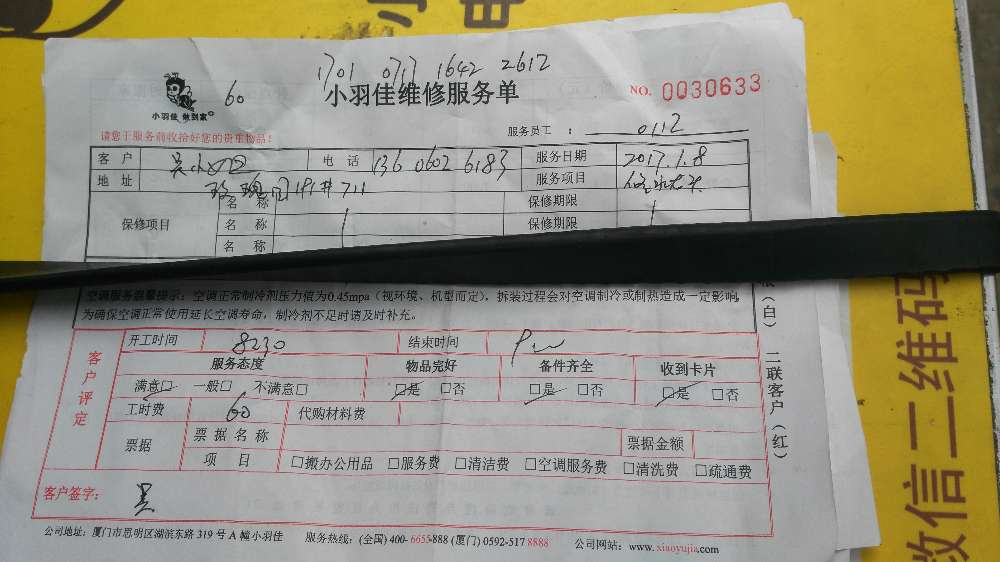 1701 0717 1642 2612
60
小羽佳 做到家
小羽佳维修服务单
NO. 0030633
请您于服务前收拾好您的贵重物品!
服务员工: 0112
客户 电话 136 0602 6183 服务日期 2017.1.8
地址 玫瑰园 711 服务项目
名称 保修期限
保修项目 名称 保修期限
名称
空调服务温馨提示:空调正常制冷剂压力值为0.45mpa(视环境、机型而定),拆装过程会对空调制冷或制热造成一定影响,
为确保空调正常使用延长空调寿命,制冷剂不足时请及时补充。
(白)
二联客户(红)
客户评定
开工时间 8230 结束时间
服务态度 物品完好 备件齐全 收到卡片
满意□ 一般□ 不满意□ □是 □否 □是 □否 □是 □否
工时费 60 代购材料费
票据 票据名称 票据金额
项目 □搬办公用品 □服务费 □清洁费 □空调服务费 □清洗费 □疏通费
客户签字: 吴
公司地址:厦门市思明区湖滨东路 319 号 A 幢小羽佳 服务热线:(全国) 400-6655-888 (厦门) 0592-517 8888 公司网站:www.xiaoyujia.com
微信二维码